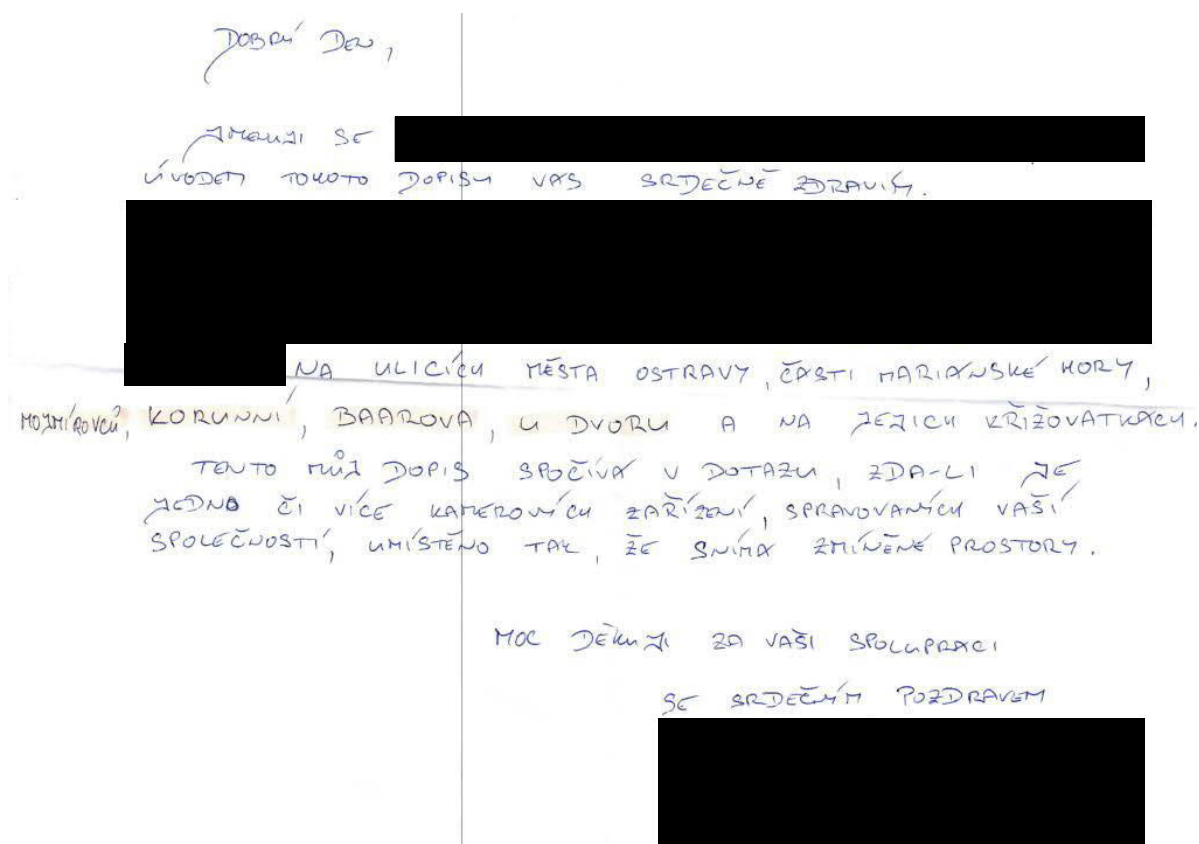 DOBRÝ DEN,
JMENUJI SE
ÚVODEM TOHOTO DOPISU VÁS SRDEČNĚ ZDRAVÍM.
NA ULICÍCH MĚSTA OSTRAVY, ČÁSTI MARIÁNSKÉ HORY,
MOJMÍROVCŮ, KORUNNÍ, BAAROVA, U DVORU A NA JEJICH KŘIŽOVATKÁCH.
TENTO MŮJ DOPIS SPOČÍVÁ V DOTAZU, ZDA-LI JE
JEDNO ČI VÍCE KAMEROVÝCH ZAŘÍZENÍ, SPRAVOVANÝCH VAŠÍ
SPOLEČNOSTÍ, UMÍSTĚNO TAK, ŽE SNÍMÁ ZMÍNĚNÉ PROSTORY.
MOC DĚKUJI ZA VAŠI SPOLUPRÁCI
SE SRDEČNÝM POZDRAVEM